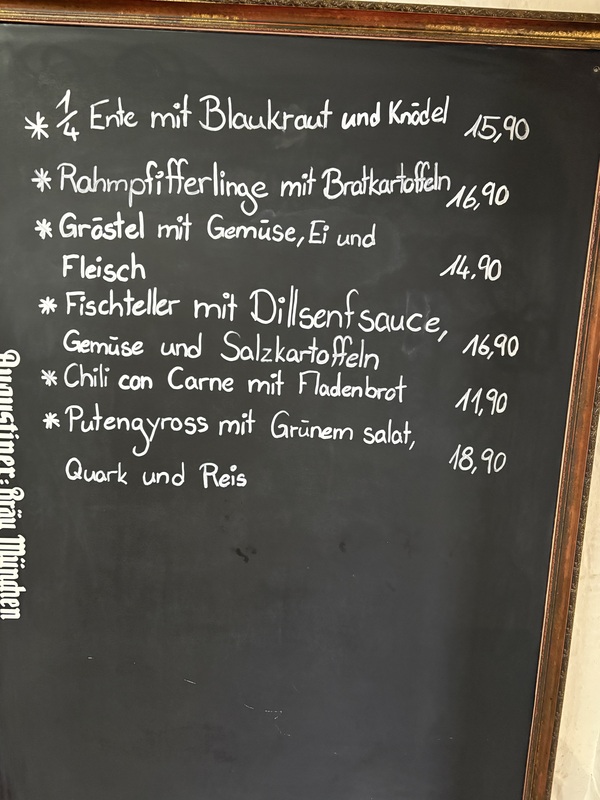 * 1/4 Ente mit Blaukraut und Knödel 15,90
* Rahmpfifferlinge mit Bratkartoffeln 16,90
* Gröstel mit Gemüse, Ei und
Fleisch 14,90
* Fischteller mit Dillsenfsauce,
Gemüse und Salzkartoffeln 16,90
* Chili con Carne mit Fladenbrot 11,90
* Putengyross mit Grünem salat,
Quark und Reis 18,90
Augustiner-Bräu München